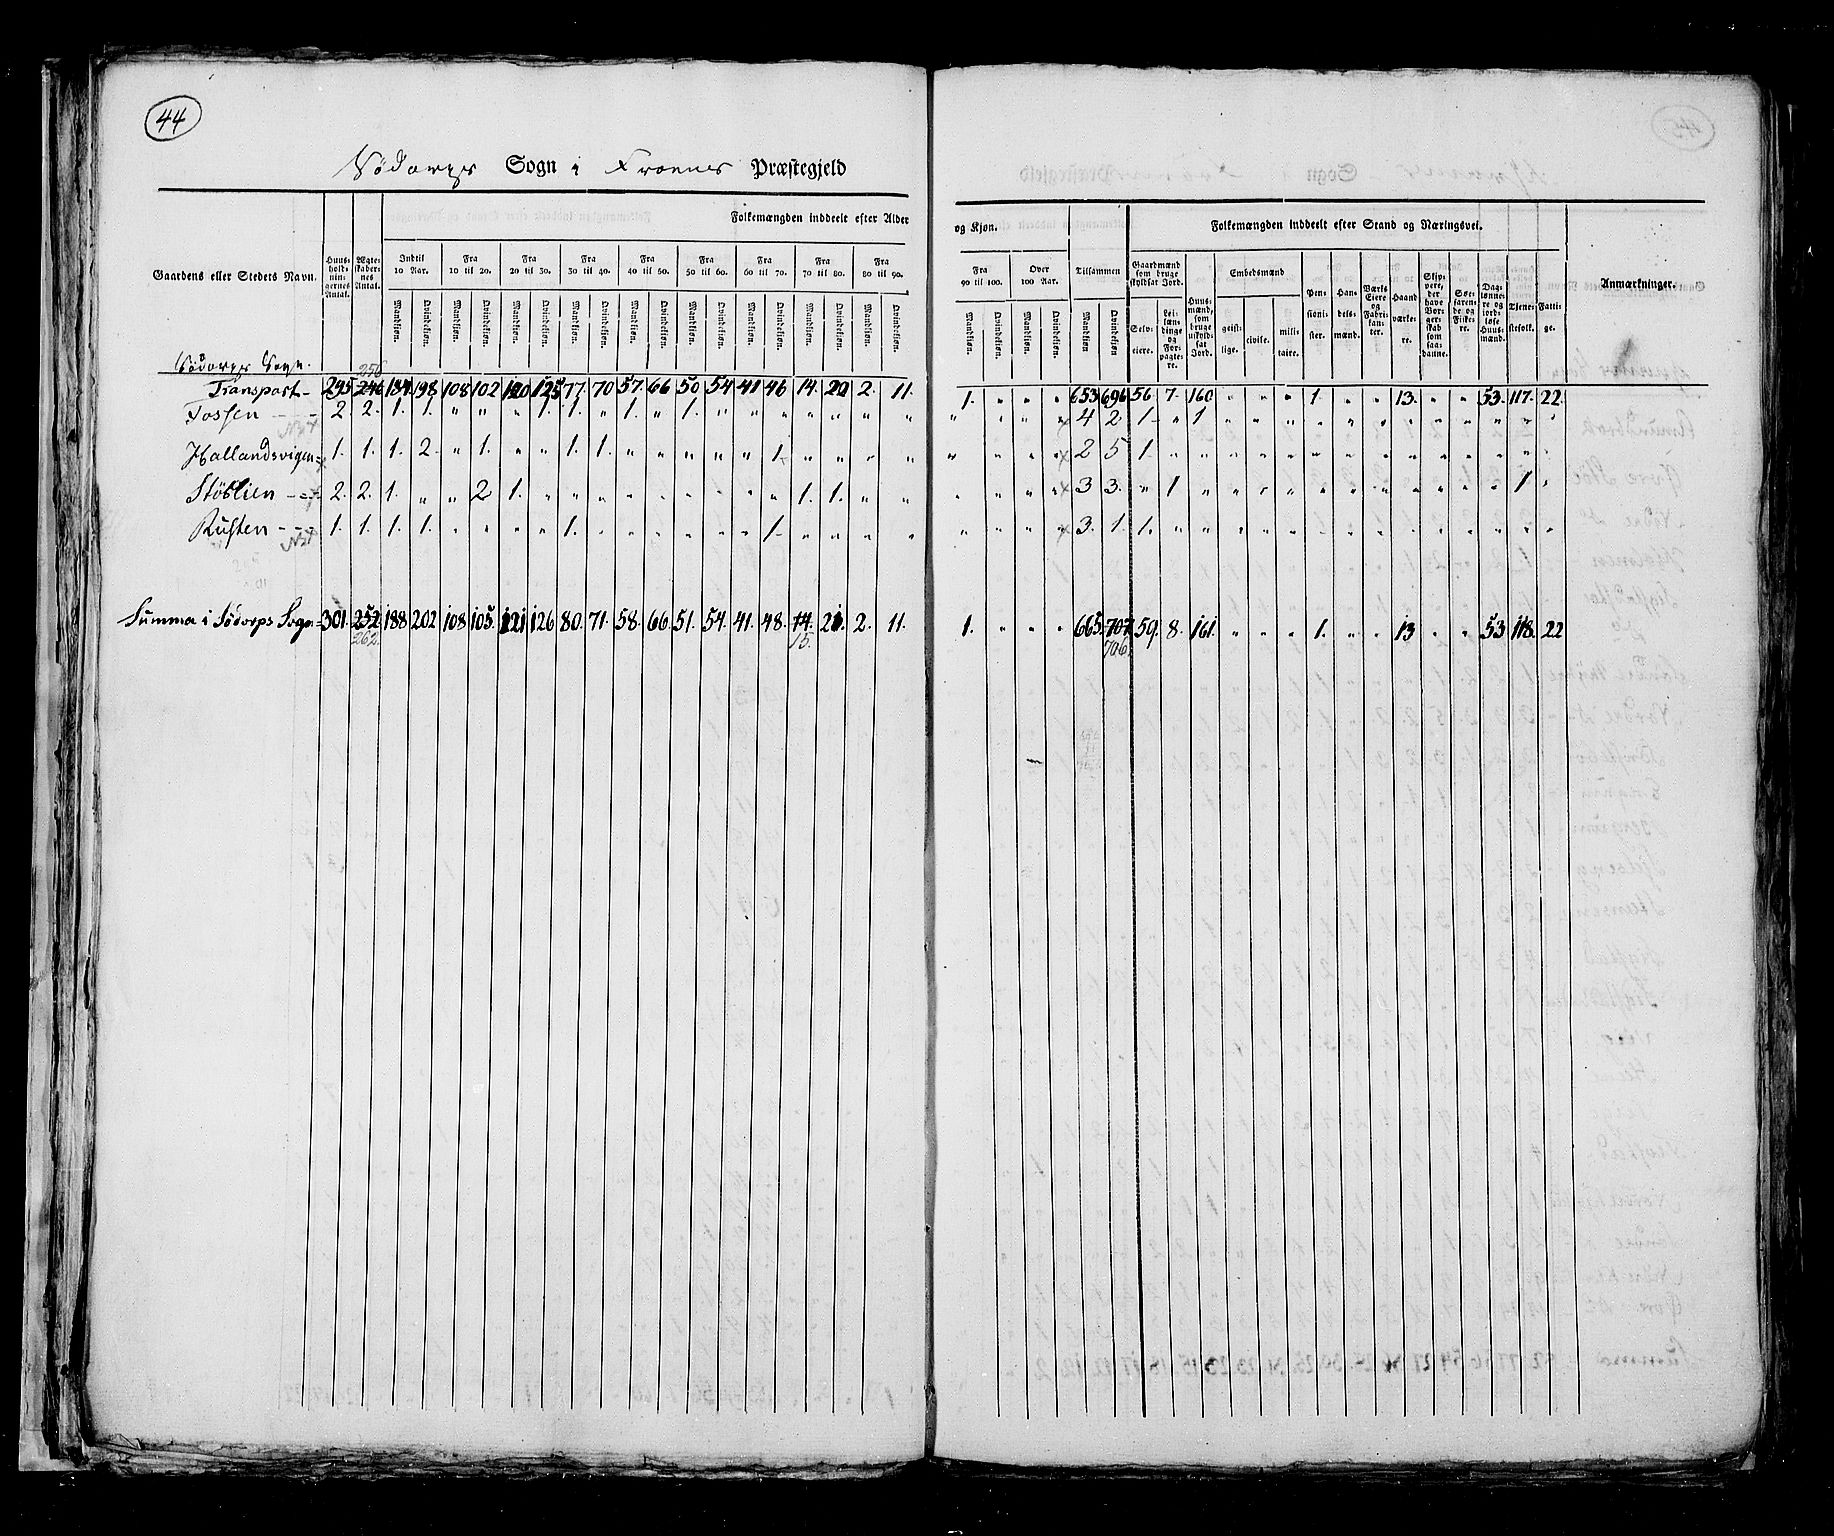 44
Södorps Sogn i Froens Præstegjeld
Folkemængden inddeelt efter Alder og Kjøn.
Folkemængden inddeelt efter Stand og Næringsvei.
Gaardens eller Stedets Navn. Huusholdningernes Antal. Ægteskabernes Antal. Indtil 10 Aar. Fra 10 til 20. Fra 20 til 30. Fra 30 til 40. Fra 40 til 50. Fra 50 til 60. Fra 60 til 70. Fra 70 til 80. Fra 80 til 90. Fra 90 til 100. Over 100 Aar. Tilsammen Gaardmænd som bruge skyldsat Jord. Huusmænd, som bruge uskyldsat Jord. Embedsmænd Pensionister. Handelsmænd. Værks Eiere og Fabrikanter. Haandværkere. Skippere, der have Borgerskab som saadanne. Søefarende og Fiskere. Daglønnere og jordløse Huusmænd. Tjenestefolk. Fattige. Anmærkninger.
Mandkiøn. Qvindekiøn. Mandkiøn. Qvindekiøn. Mandkiøn. Qvindekiøn. Mandkiøn. Qvindekiøn. Mandkiøn. Qvindekiøn. Mandkiøn. Qvindekiøn. Mandkiøn. Qvindekiøn. Mandkiøn. Qvindekiøn. Mandkiøn. Qvindekiøn. Mandkiøn. Qvindekiøn. Mandkiøn. Qvindekiøn. Mandkiøn Qvindekiøn Selveiere. Leilændinge og Forpagtere. geistlige. civile. militaire.
Södorps Sogn.
256
Transport 295 246 184 198 108 102 120 125 77. 70 57. 66 50 54 41 46 14. 20 2. 11. 1. " " " 653 696 56 7. 160 " " " 1. " " 13. " " 53. 117. 22
Fossen 2. 2. 1. 1. " " " 1. 1. " 1. " 1. " " " " " " " " " " " 4 2. 1 " 1 " " " " " " " " " " " "
Hallandsvigen 1. 1. 1. 2. " 1. " " 1. 1. " " " " " 1. " " " " " " " " 2 5 1. " " " " " " " " " " " " " "
Stöblien 2. 2. 1. " " 2 1. " " " " " " " " " 1. 1. " " " " " " 3 3. " 1 " " " " " " " " " " " 1 "
Rusten 1. 1. 1. 1. " " " " 1. " " " " " " 1. " " " " " " " " 3. 1. 1. " " " " " " " " " " " " " "
Summa i Södorps Sogn 301 252 188 202 108 105. 121 126 80. 71. 58. 66. 51. 54. 41. 48. 14. 21. 2. 11. 1. " " " 665. 707 59. 8. 161. " " " 1. " " 13 " " 53. 118. 22
262. 15. 706.